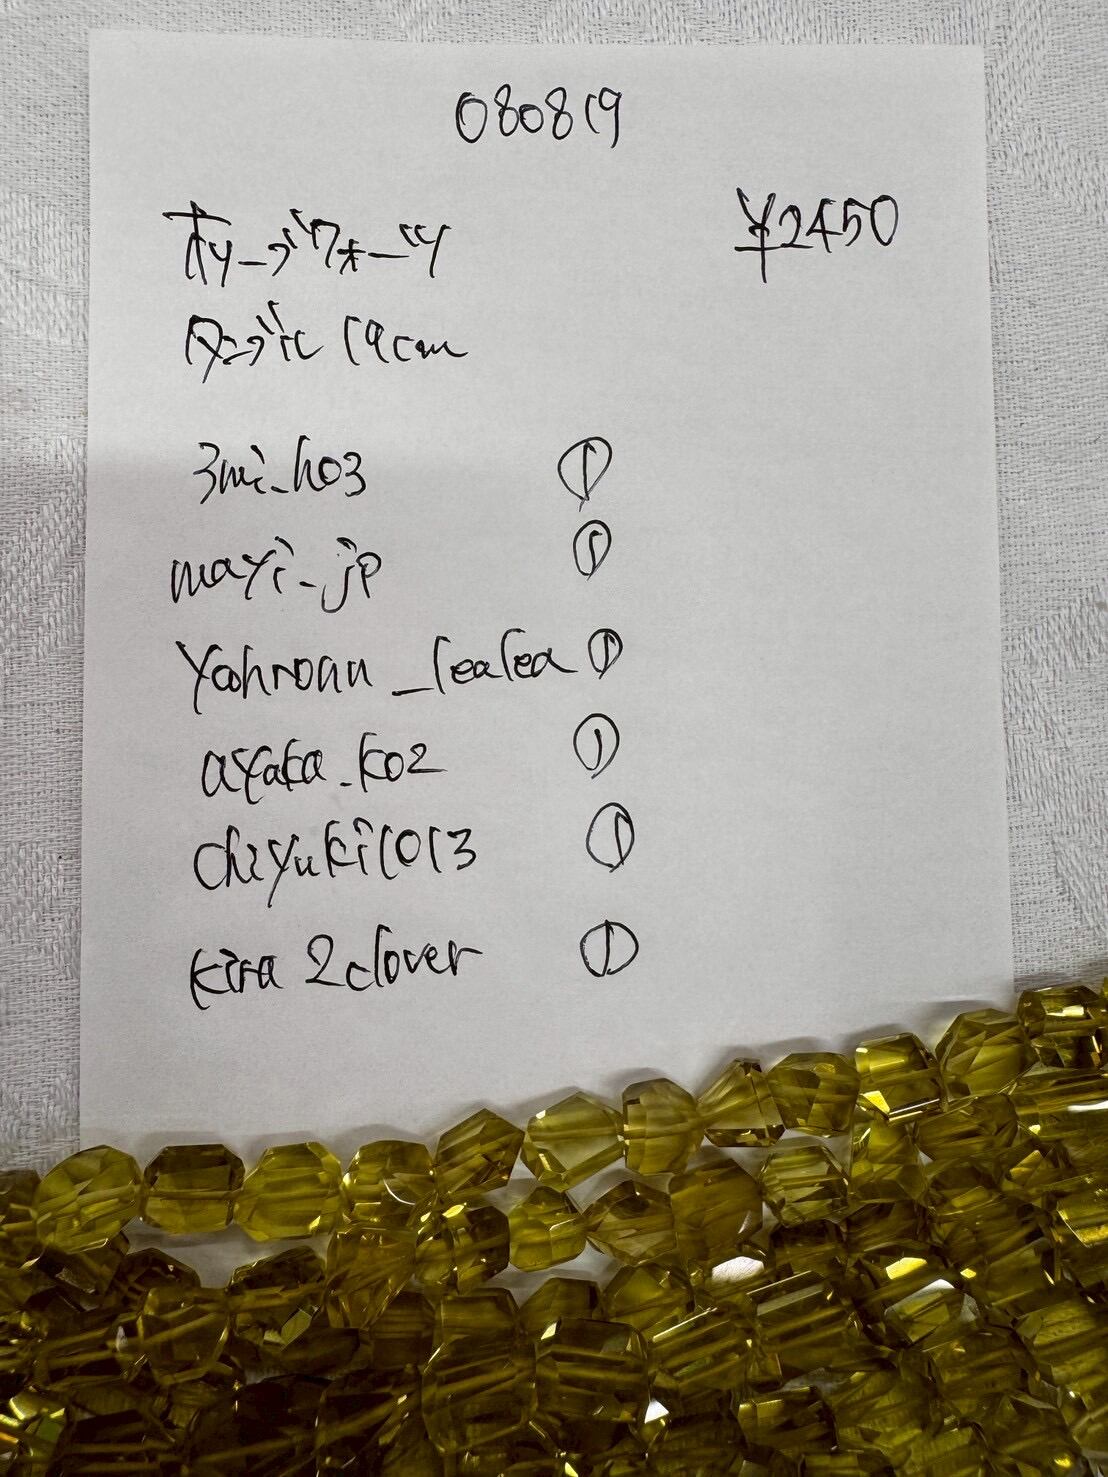 080819
オリーブクォーツ ¥2450
タンブル 19cm
3mi_ho3 ①
mayi_jp ①
yoohronn_lealea ①
ayaka_ko2 ①
chiyuki1013 ①
kira2clover ①